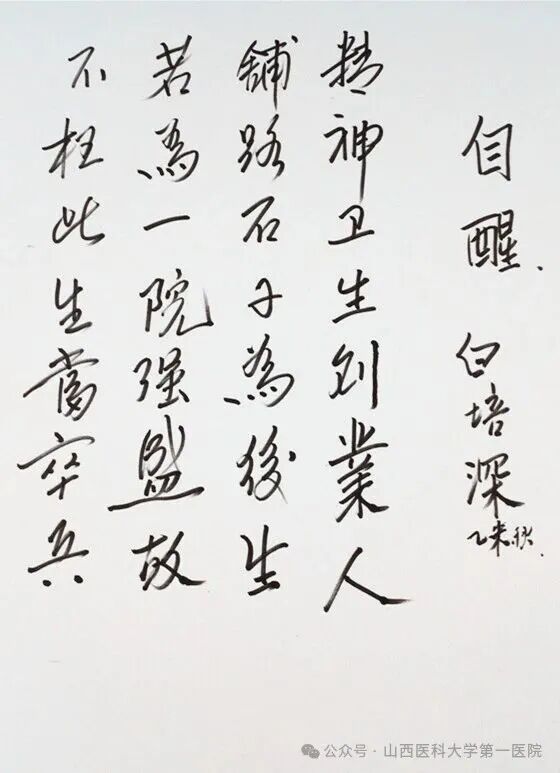 自醒.
白培深
乙未秋.
精神卫生创業人
舖路石子為後生
若為一院强盛故
不枉此生當卒兵
公众号·山西医科大学第一医院